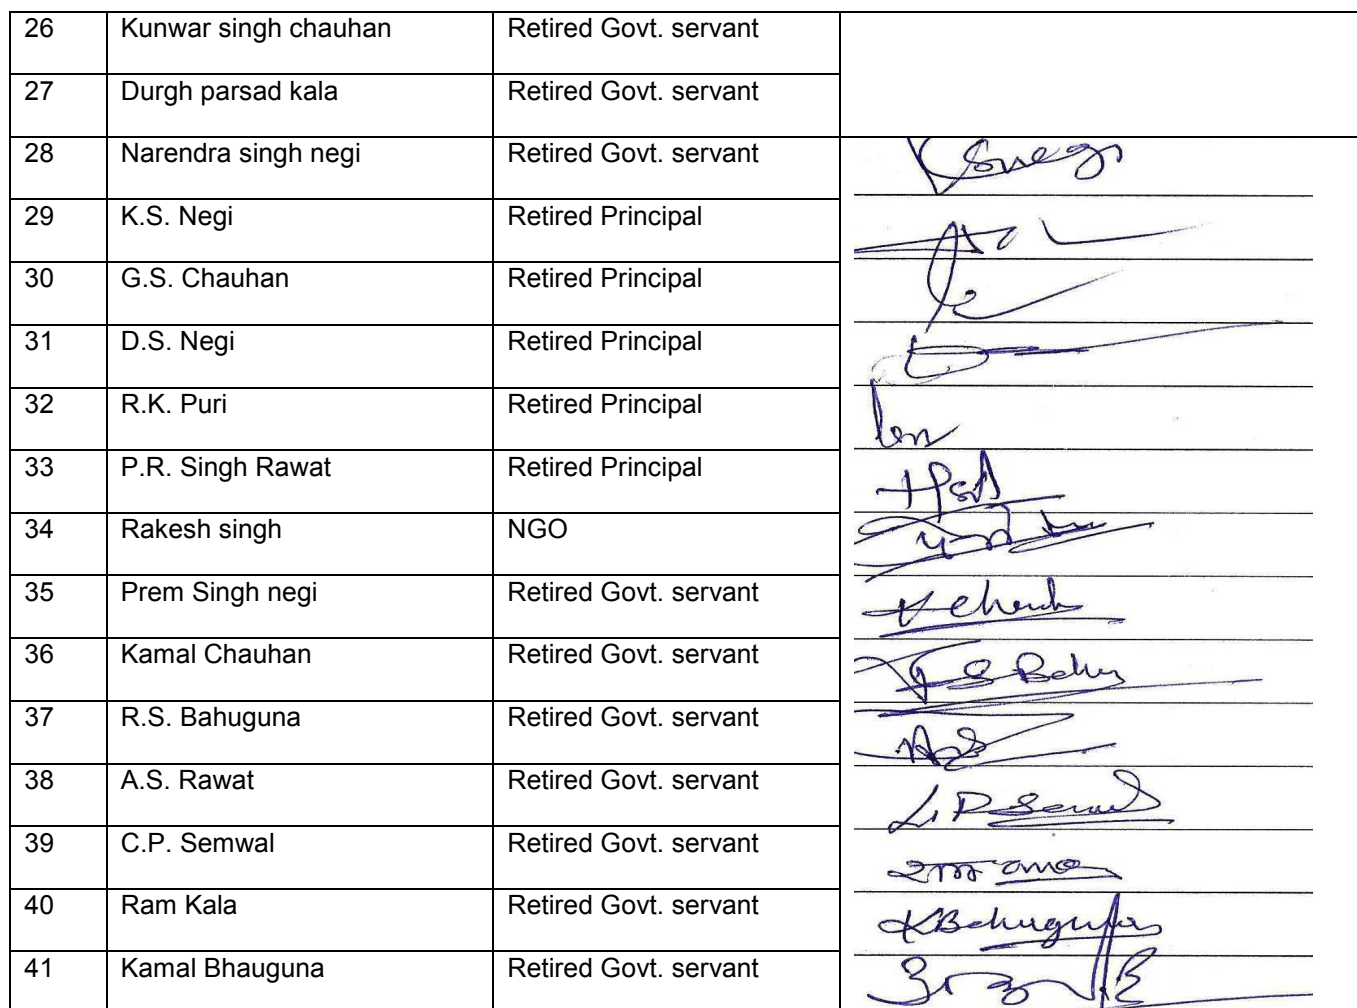 26 Kunwar singh chauhan Retired Govt. servant
27 Durgh parsad kala Retired Govt. servant
28 Narendra singh negi Retired Govt. servant
29 K.S. Negi Retired Principal
30 G.S. Chauhan Retired Principal
31 D.S. Negi Retired Principal
32 R.K. Puri Retired Principal
33 P.R. Singh Rawat Retired Principal
34 Rakesh singh NGO
35 Prem Singh negi Retired Govt. servant
36 Kamal Chauhan Retired Govt. servant
37 R.S. Bahuguna Retired Govt. servant
38 A.S. Rawat Retired Govt. servant
39 C.P. Semwal Retired Govt. servant
40 Ram Kala Retired Govt. servant KBahuguna
41 Kamal Bhauguna Retired Govt. servant